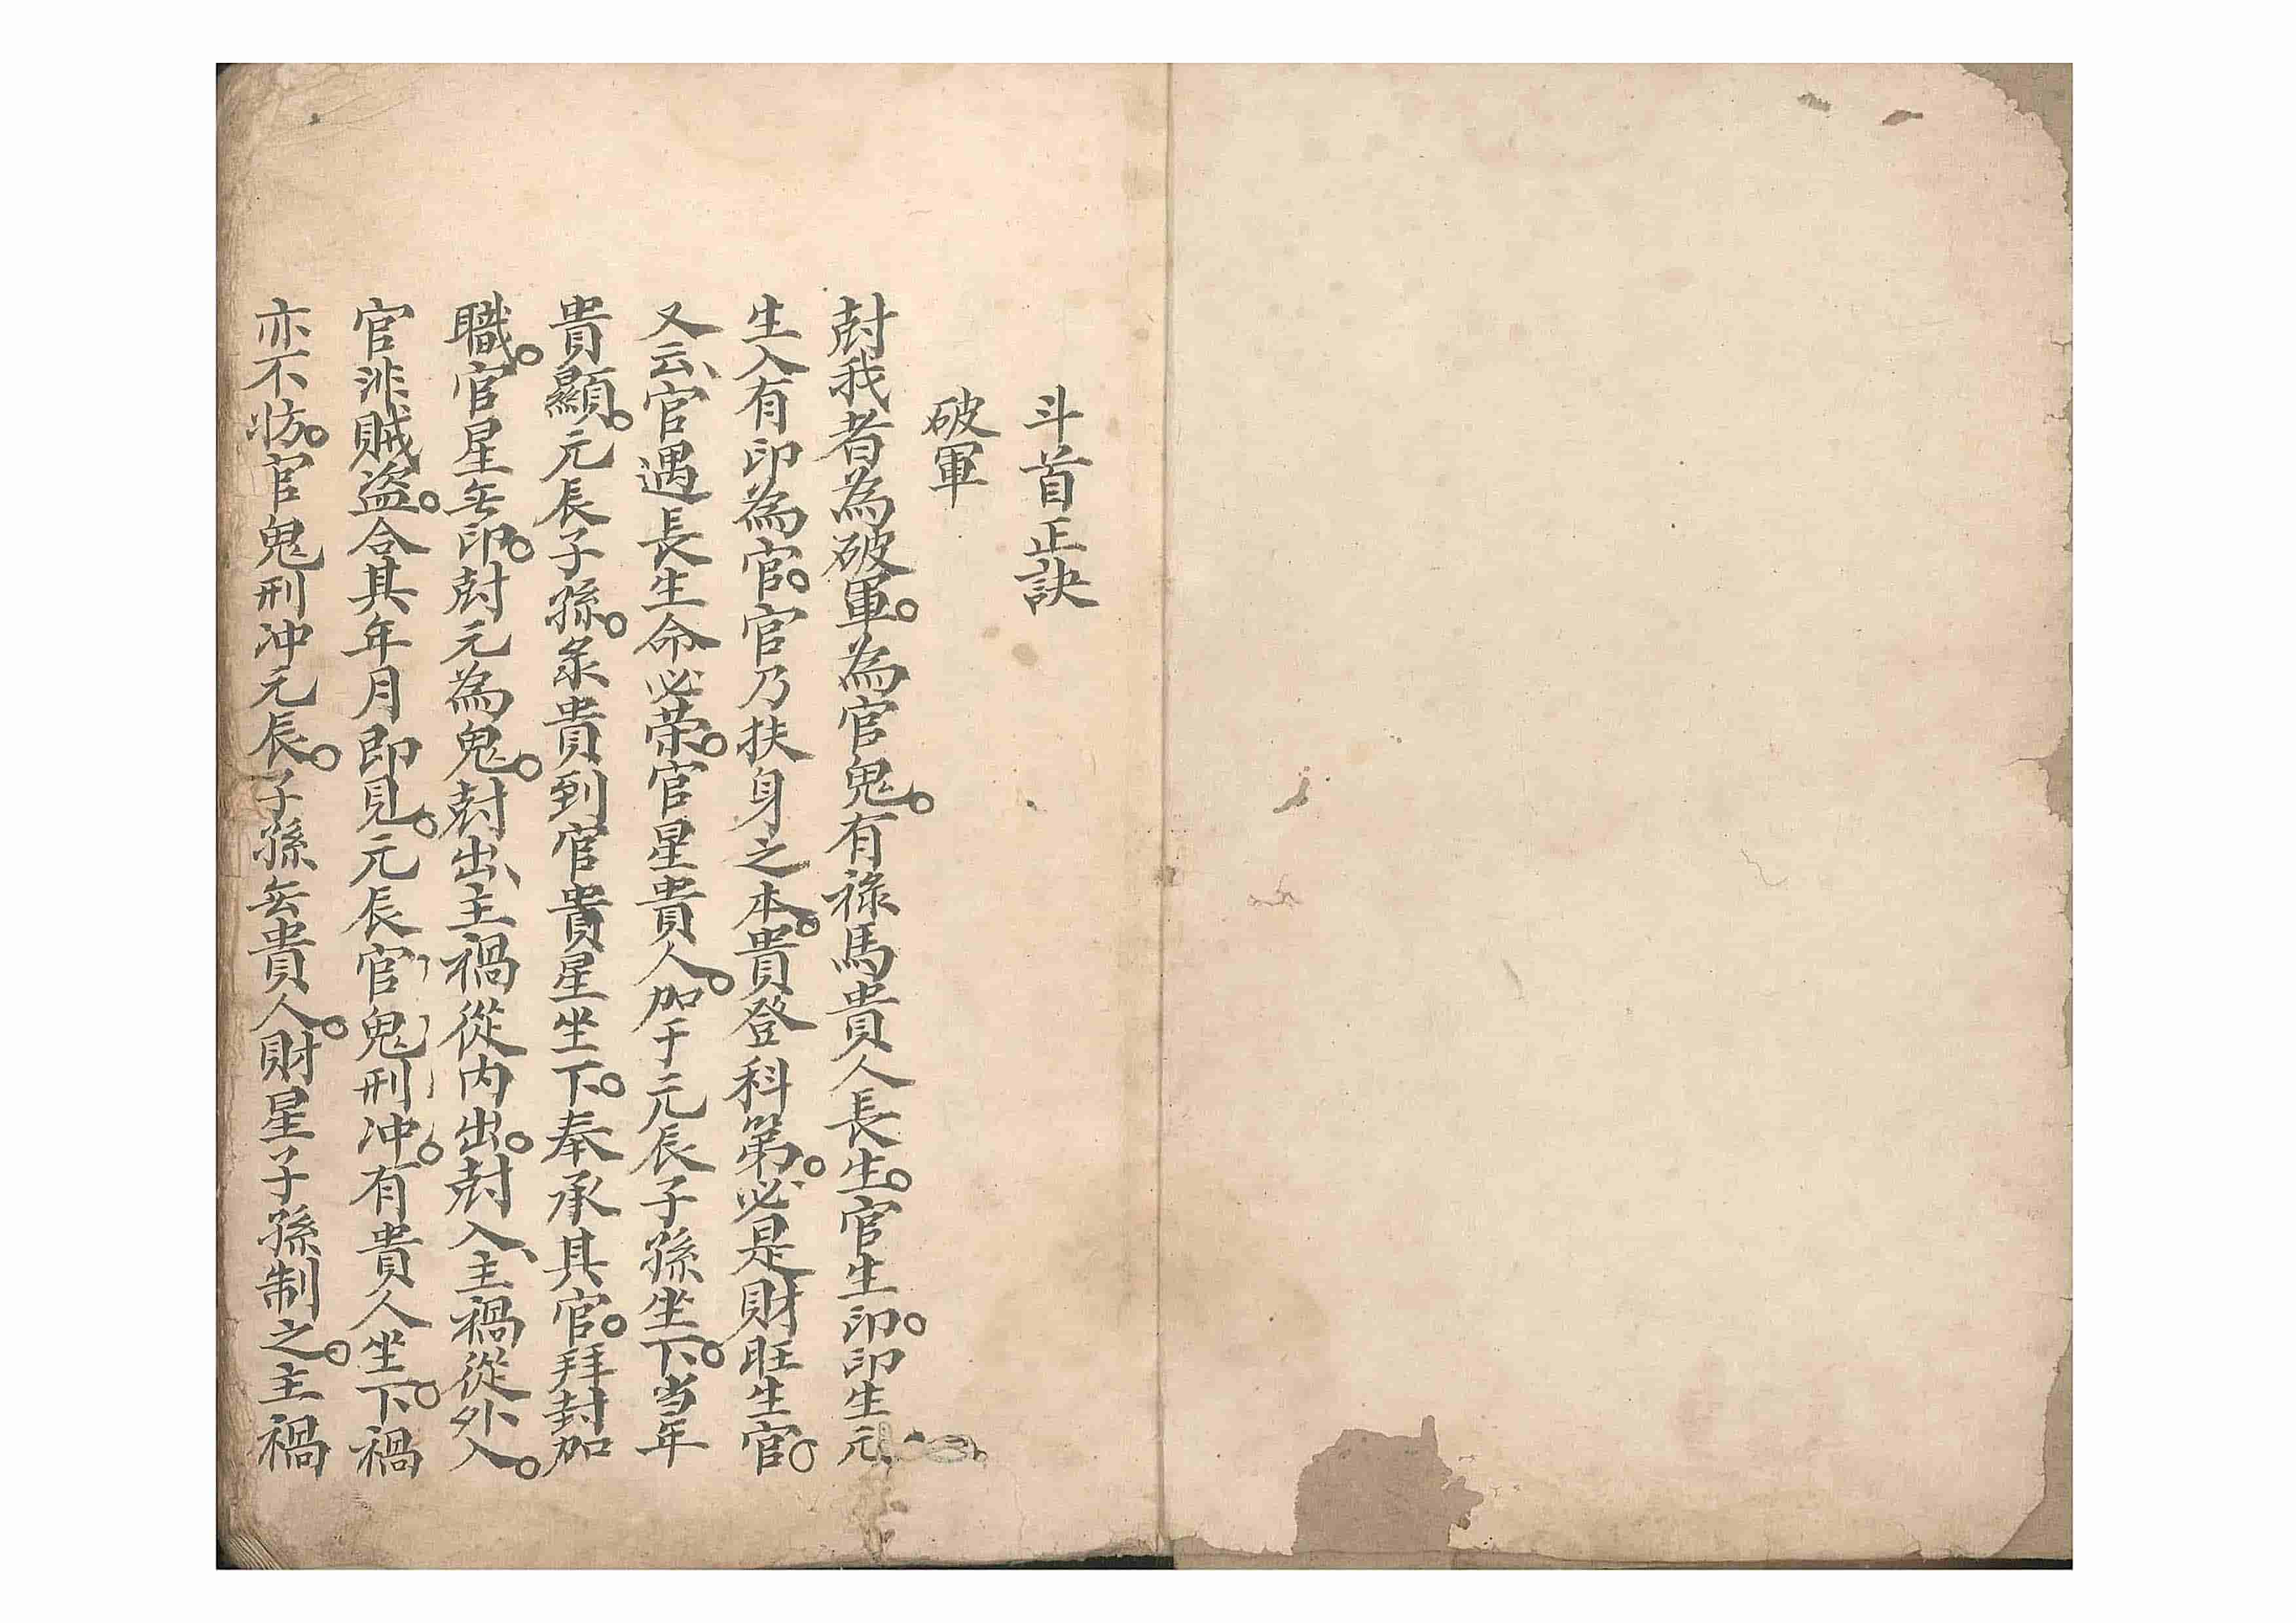 斗首正訣
破軍
尅我者為破軍。為官鬼。有祿馬貴人長生。官生印。印生元
生入有印為官。官乃扶身之本。貴登科第。必是財旺生官。
又云、官遇長生命必荣。官星貴人。加于元辰子孫坐下。当年
貴顯。元辰子孫。系貴到官貴星坐下。奉承其官。拜封加
職。官星无印。尅元為鬼。尅出、主禍從內出。尅入、主禍從外入。
官非賊盗。合其年月即見。元辰官鬼刑冲。有貴人坐下。禍
亦不妨。官鬼刑冲元辰。子孫无貴人。財星子孫制之。主禍